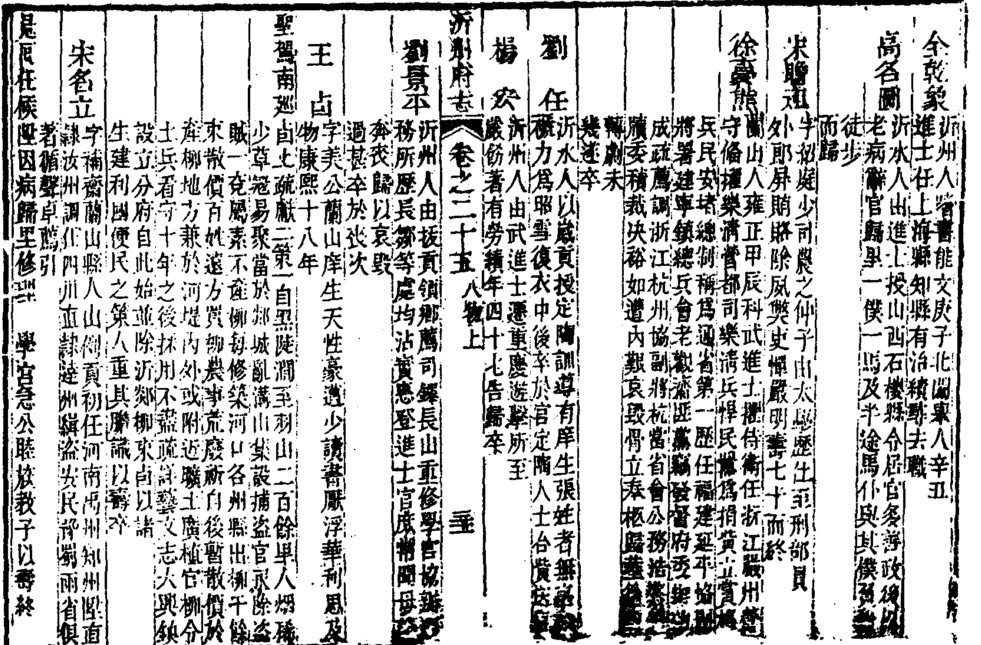 全乾象
沂州人嗜書能文庚子北闈舉人辛丑
進士任上海縣知縣有治積尋去職
高名圖
沂水人由進士授山西石樓縣令居官多善政後以
老病辭官歸里一僕一馬及半途馬仆與其僕
徒步
而歸
宋瞻祖
牛招庭少司農之仲子由太學歷仕至刑部員
外郎屏賄賂除夙獘吏憚嚴明壽七十而終
徐熊
蘭山人雍正甲辰科武進士授侍衛任浙江嚴州營
守備擢樂清營都司樂清兵悍民為捐貲立
兵民安堵總制稱為通省第一歷任福建延平協副
將署建寧鎮總兵會老觀齋匪竊發督府委
成疏薦調浙江杭州協副將杭當省會公務浩繁
牘委積裁決裕如遭內艱哀毀骨立奉柩歸葬
轉劇未
幾遂卒
劉 任
沂水人以歲貢授定陶訓導有庠生張姓者無
極力為昭雪復衣巾後卒於官定陶人士台貲
楊 安
沂州人由武進士歷重慶遊擊所至
嚴飭著有勞績年四十七告歸卒
沂州府志
卷之二十五 人物上
劉景平
沂州人由拔貢領鄉薦司鐸長山重修學宮協辦
務所歷長鄒等處均沾實惠登進士官度常聞母
奔喪歸以哀毀
過甚卒於喪次
王 占
字美公蘭山庠生天性豪邁少讀書厭浮華利思及
物康熙十八年
聖駕南廵
占上疏獻二策一自黑陡澗至羽山二百餘里人烟稀
少草寇易聚當於郯城亂溝山集設捕盜官永除盜
賊一兗屬素不產柳每修築河口各州縣出柳千餘
束散價百姓遠方買柳農事荒廢祈自後暫散價於
產柳地方兼於河堤內外或附近曠土廣植官柳令
土兵看守十年之後採用不藍疏詳藝文志大興鎮
設立分府自此始並除沂郯柳束占以諸
生建利國便民之策人重其膽識以壽卒
宋名立
字補齋蘭山縣人山貢初任河南禹州知州陞直
隸汝州調任四川直隸達州緝盜安民豫蜀兩省俱
著循聲卓薦引
見原任候陞因病歸里修理 學宮急公睦族教子以壽終